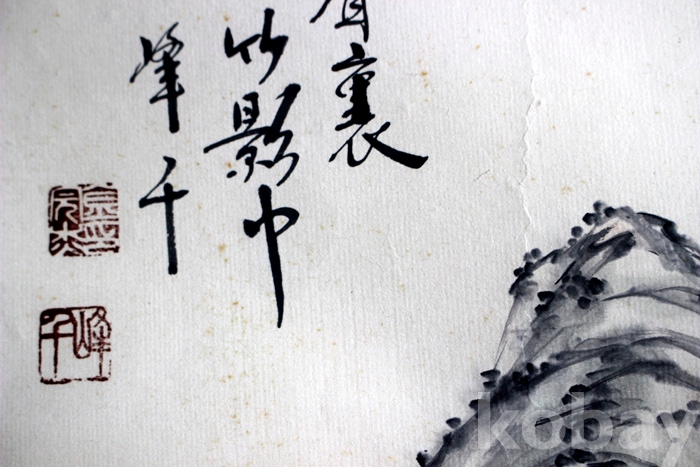 裏
竹影中
峰千
峰千
kobay